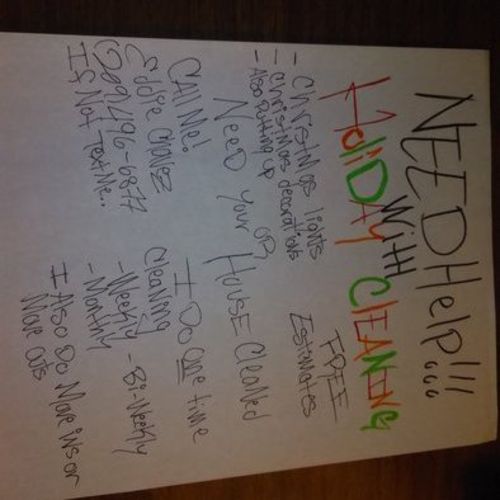 NEED Help!!!
With
HOLiDAY CLEANING
- Christmas lights
- Christmas decorations
- Also Putting up
FREE
Estimates
OR,
NEED your House Cleaned
CAll Me!
Eddie
(209) 496-6877
If Not Text Me..
I Do One time
Cleaning
- Weekly - Bi-Weekly
- Monthly
I Also Do Move ins or
Move outs